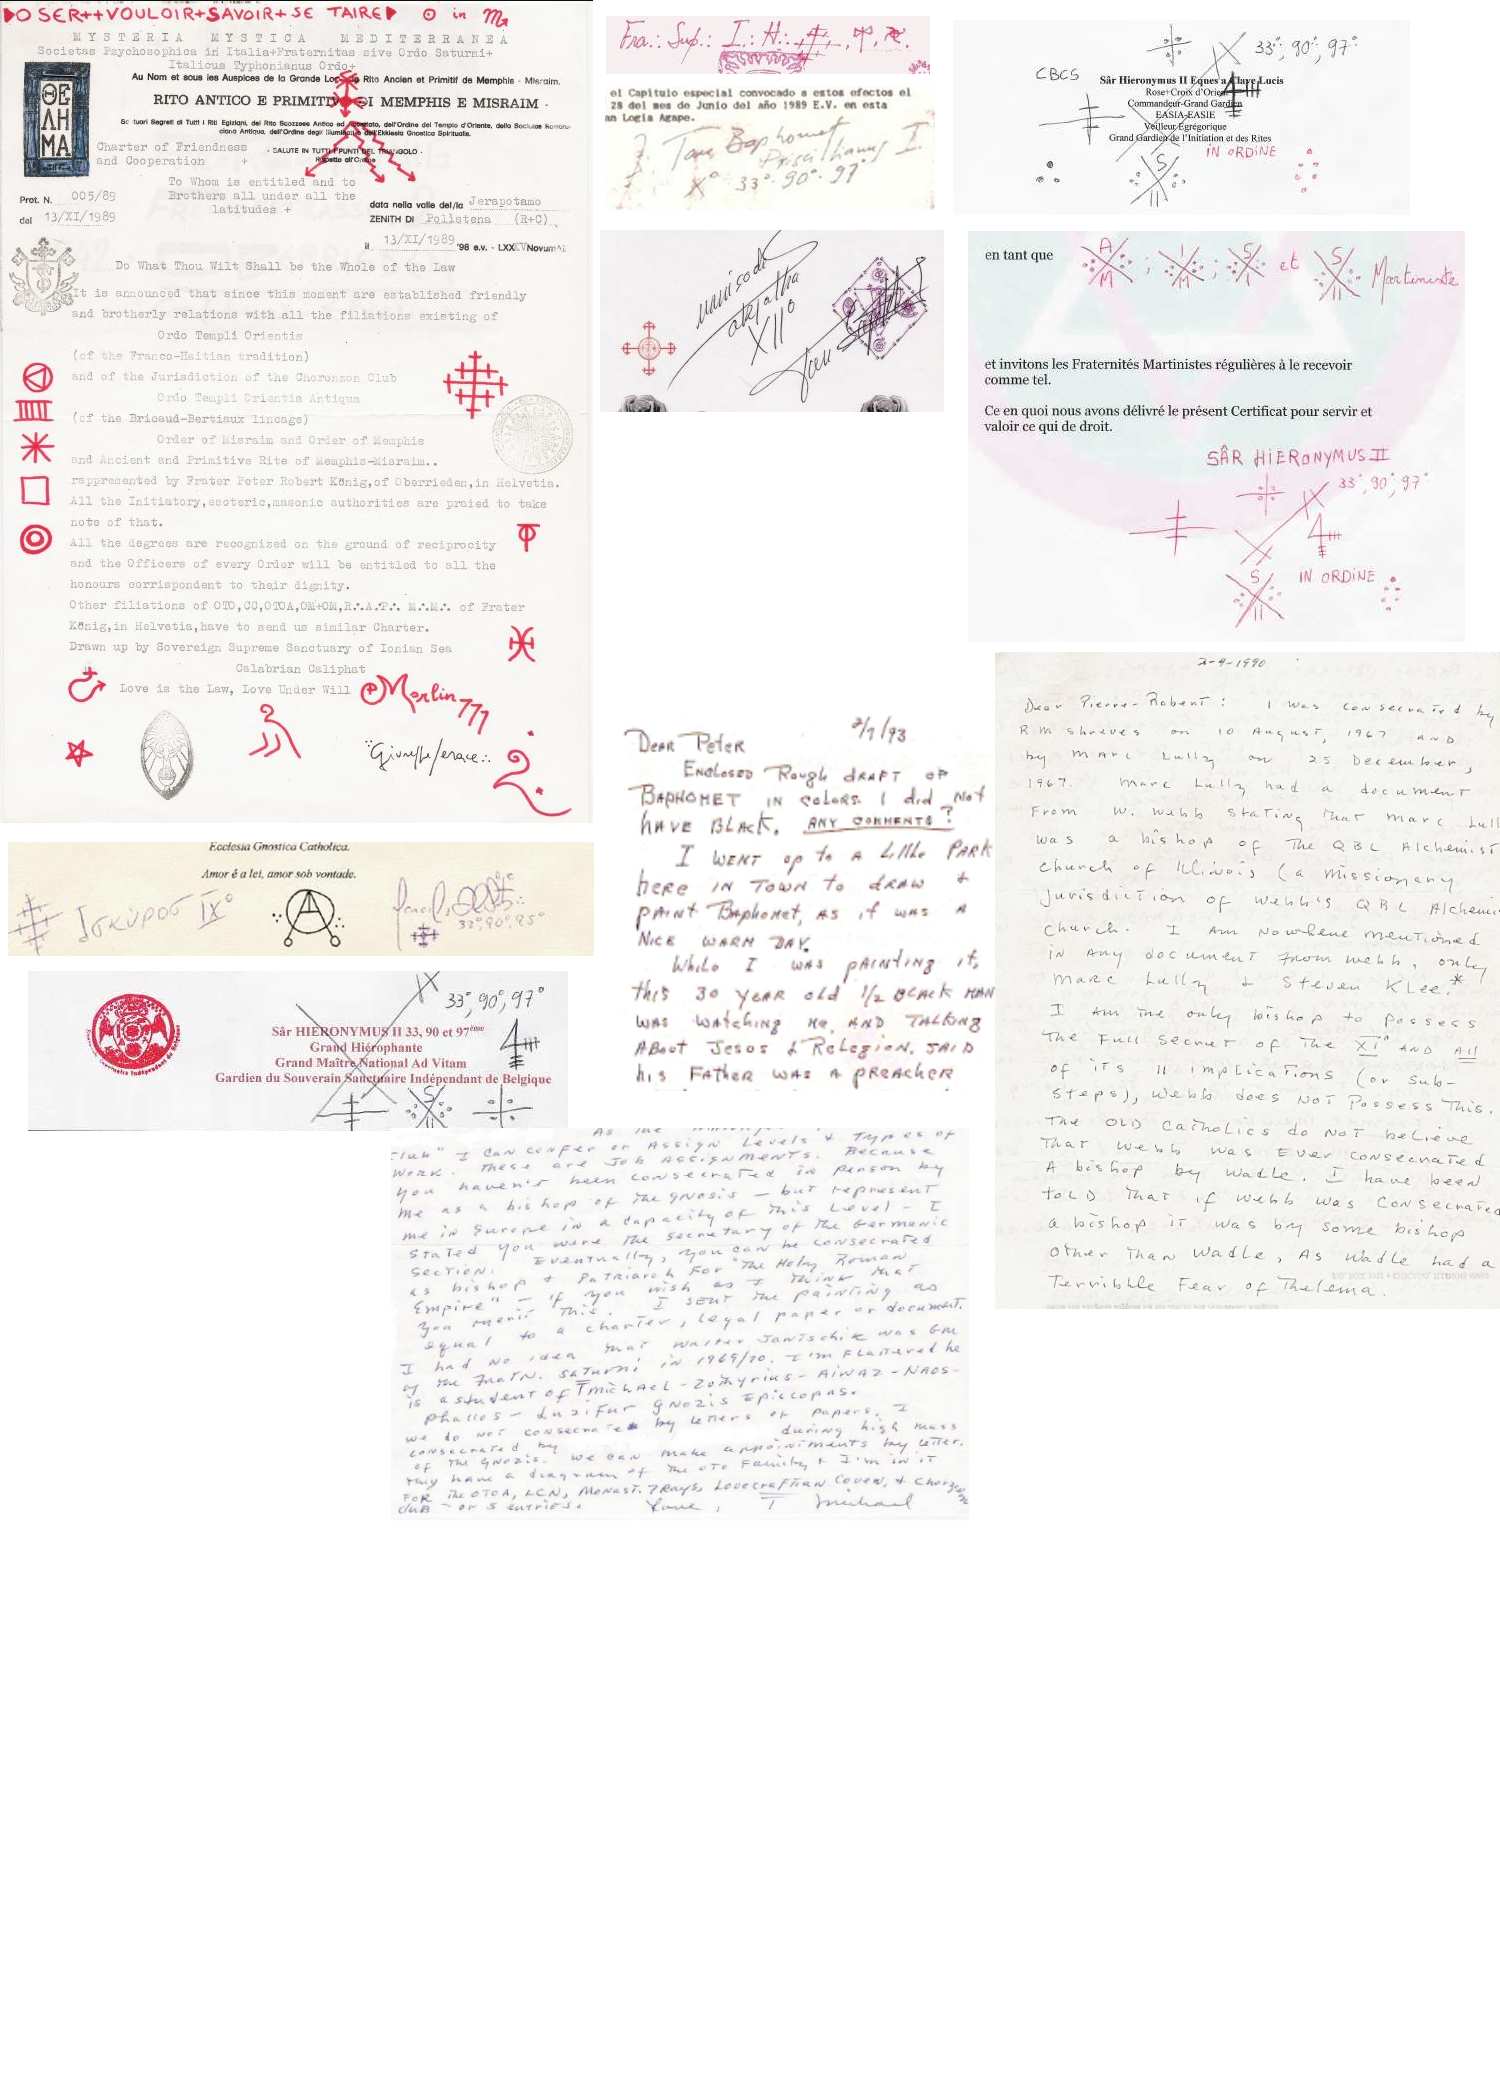 O SER++VOULOIR+SAVOIR+SE TAIRE
in
MYSTERIA MYSTICA MEDITERRANEA
Societas Psychosophica in Italia+Fraternitas sive Ordo Saturni+
Italicus Typhonianus Ordo+
Au Nom et sous les Auspices de la Grande Rito Ancien et Primitif de Memphis - Misraim.
RITO ANTICO E PRIMITIVO DI MEMPHIS E MISRAIM -
ΘΕ
ΛΗ
ΜΑ
Charter of Friendness
and Cooperation +
- SALUTE IN TUTTI I PUNTI DEL TRIANGOLO -
Rispetto all'Ordine
To Whom is entitled and to
Brothers all under all the
latitudes +
Prot. N. 005/89
del 13/XI/1989
data nella valle del/la Jerapotamo
ZENITH DI Polletena (R+C)
il 13/XI/1989 '98 e.v. -
Do What Thou Wilt Shall be the Whole of the Law
It is announced that since this moment are established friendly
and brotherly relations with all the filiations existing of
Ordo Templi Orientis
(of the Franco-Haitian tradition)
and of the Jurisdiction of the Choronzon Club
Ordo Templi Orientis Antiqua
(of the Bricaud-Bertiaux lineage)
Order of Misraim and Order of Memphis
and Ancient and Primitive Rite of Memphis-Misraim..
rappresented by Frater Peter Robert König,of Oberrieden,in Helvetia.
All the Initiatory,esoteric,masonic authorities are praied to take
note of that.
All the degrees are recognized on the ground of reciprocity
and the Officers of every Order will be entitled to all the
honours corrispondent to their dignity.
Other filiations of OTO,CC,OTOA,OM+OM,R∴A∴P∴ M∴M∴ of Frater
König,in Helvetia,have to send us similar Charter.
Drawn up by Sovereign Supreme Sanctuary of Ionian Sea
Calabrian Caliphat
Love is the Law, Love Under Will
Merlin 777
Fra.: Sup.: I.: H.:
el Capitulo especial convocado a estos efectos el
28 del mes de Junio del año 1989 E.V. en esta
an Logia Agape.
Tau Baphomet
Priscillianus I.
X° 33°.90°.97°
33°; 90°; 97°
CBCS
Sâr Hieronymus II Eques a Clave Lucis
Rose+Croix d'Orient
Commandeur-Grand Gardien
EASIA-EASIE
Veilleur Égrégorique
Grand Gardien de l'Initiation et des Rites
IN ORDINE
S
II
XII°
en tant que A M ; I M ; S I et S II Martiniste
et invitons les Fraternités Martinistes régulières à le recevoir
comme tel.
Ce en quoi nous avons délivré le présent Certificat pour servir et
valoir ce qui de droit.
SÂR HIERONYMUS II
33°, 90°, 97°
S
II
IN ORDINE
Ecclesia Gnostica Catholica.
Amor é a lei, amor sob vontade.
IX°
33°, 90°, 95°
33°, 90°, 97°
Sâr HIERONYMUS II 33, 90 et 97ème
Grand Hiérophante
Grand Maître National Ad Vitam
Gardien du Souverain Sanctuaire Indépendant de Belgique
S
II
2/7/93
Dear Peter
Enclosed Rough draft of
Baphomet in colors. I did not
have Black. ANY COMMENTS?
I went up to a Little Park
here in town to draw &
paint Baphomet, as it was a
nice warm day.
While I was painting it,
this 30 year old 1/2 Black man
was watching me, and talking
about Jesos & Relegion. Said
his Father was a preacher
2-9-1990
Dear Pierre-Robert: I was consecrated by
RM Shreves on 10 August, 1967 and
by Marc Lully on 25 December,
1967. Marc Lully had a document
From W. Webb stating that Marc Lull
was a bishop of the QBL Alchemist
Church of Illinois (a missionary
jurisdiction of Webb's QBL Alchemi
Church. I am nowhere mentioned
in any document from Webb, only
Marc Lully & Steven Klee.*
I am the only bishop to possess
the full secret of the XI° and all
of its 11 implications (or sub-
steps), Webb does not possess this.
The Old Catholics do not believe
that Webb was ever consecrated
a bishop by Wadle. I have been
told that if Webb was consecrated
a bishop it was by some bishop
other than Wadle, as Wadle had a
terribble fear of Thelema.
Club" I can confer or assign levels & types of
work. These are job assignments. Because
you haven't been consecrated in person by
me as a bishop of the gnosis — but represent
me in Europe in a capacity of this level — I
stated you were the secretary of the Germanic
section. Eventually, you can be consecrated
as bishop & patriarch for "The Holy Roman
Empire" — if you wish as I think that
you merit this. I sent the painting as
equal to a charter, legal paper or document.
I had no idea that Walter Jantschik was GM
of the Fratn. Saturni in 1969/70. I'm flattered he
is a student of Tmichael-Zothyrius-Aiwaz-Naos-
Phallos-Luzifur Gnozis Episcopas.
we do not consecrate by letters or papers. I
consecrated by during high mass
of the gnozis. we can make appointments by letter.
They have a diagram of the OTO Family & I'm in it
for the OTOA, LCN, Monast. 7Rays, Lovecraftian Coven, & Choronzon
Club — or 5 entries. Love, T Michael